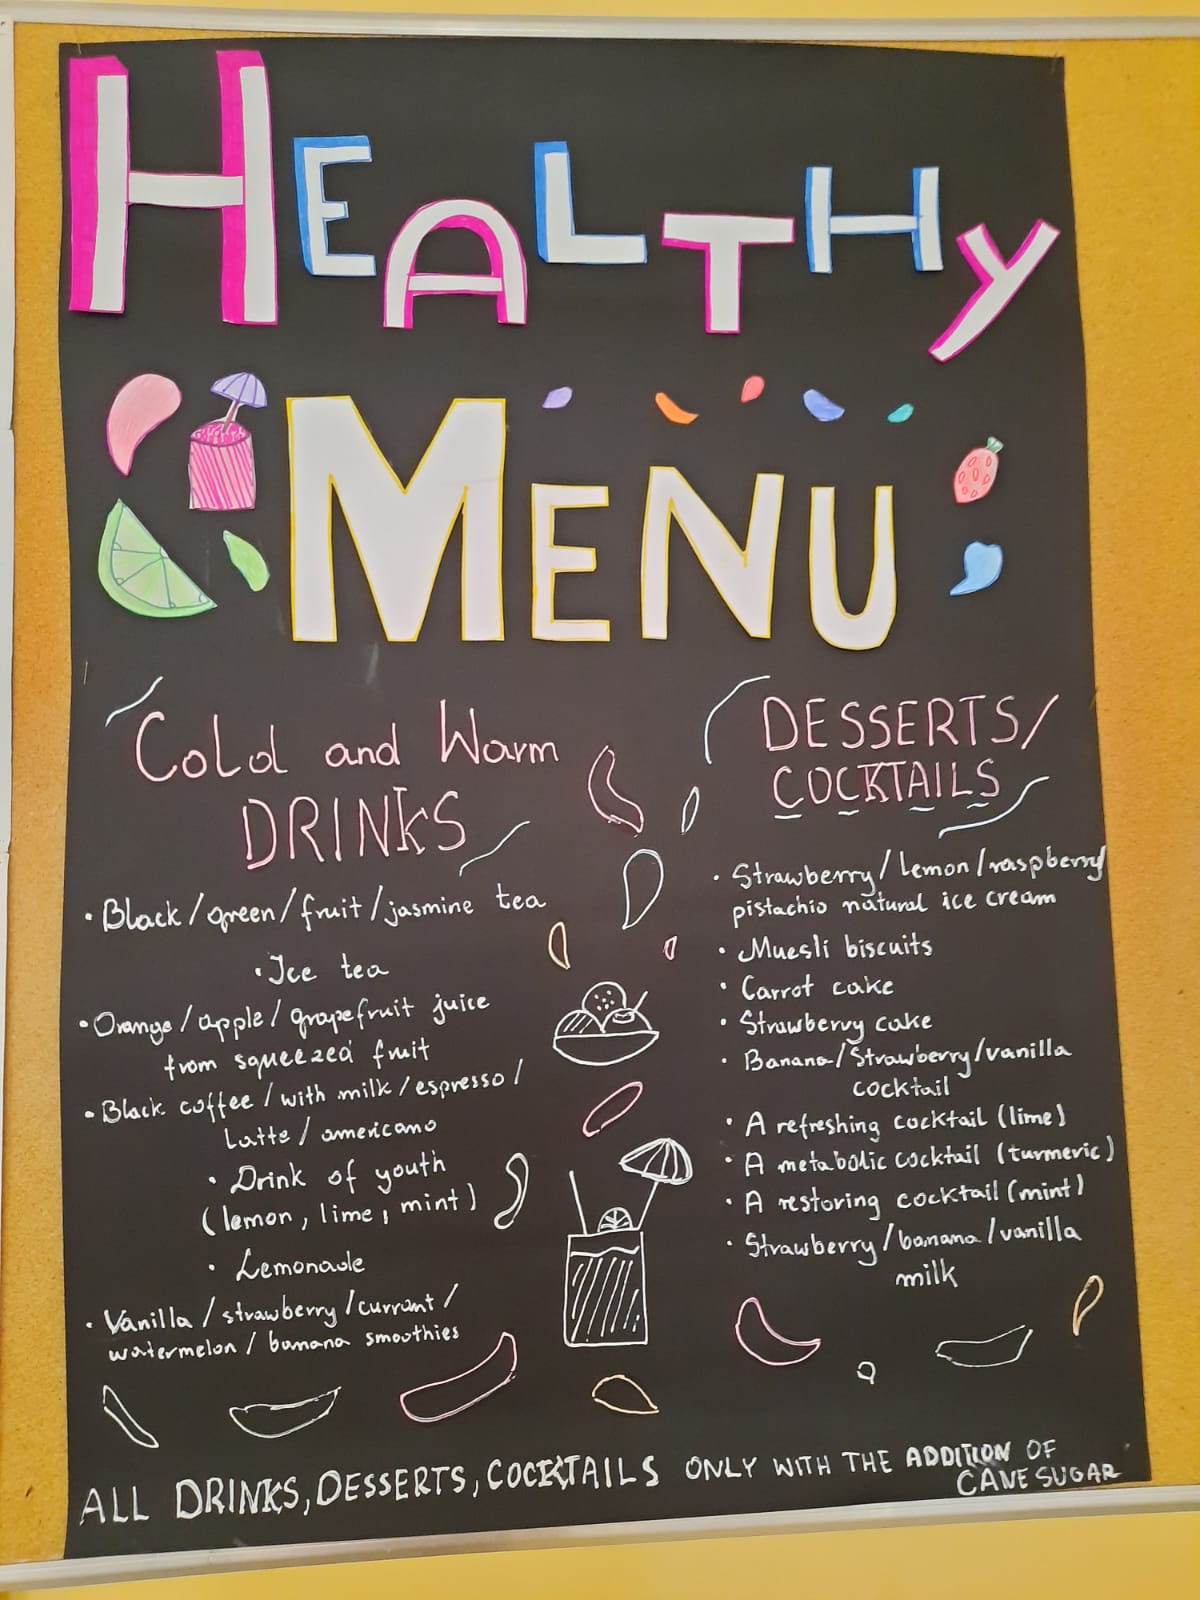 HEALTHY
MENU
Cold and Warm
DRINKS
• Black / green / fruit / jasmine tea
• Ice tea
• Orange / apple / grapefruit juice
from squeezed fruit
• Black coffee / with milk / espresso /
Latte / americano
• Drink of youth
(lemon, lime, mint)
• Lemonade
• Vanilla / strawberry / currant /
watermelon / banana smoothies
DESSERTS/
COCKTAILS
• Strawberry / lemon / raspberry/
pistachio natural ice cream
• Muesli biscuits
• Carrot cake
• Strawberry cake
• Banana / Strawberry / vanilla
cocktail
• A refreshing cocktail (lime)
• A metabolic cocktail (turmeric)
• A restoring cocktail (mint)
• Strawberry / banana / vanilla
milk
ALL DRINKS, DESSERTS, COCKTAILS ONLY WITH THE ADDITION OF
CANE SUGAR